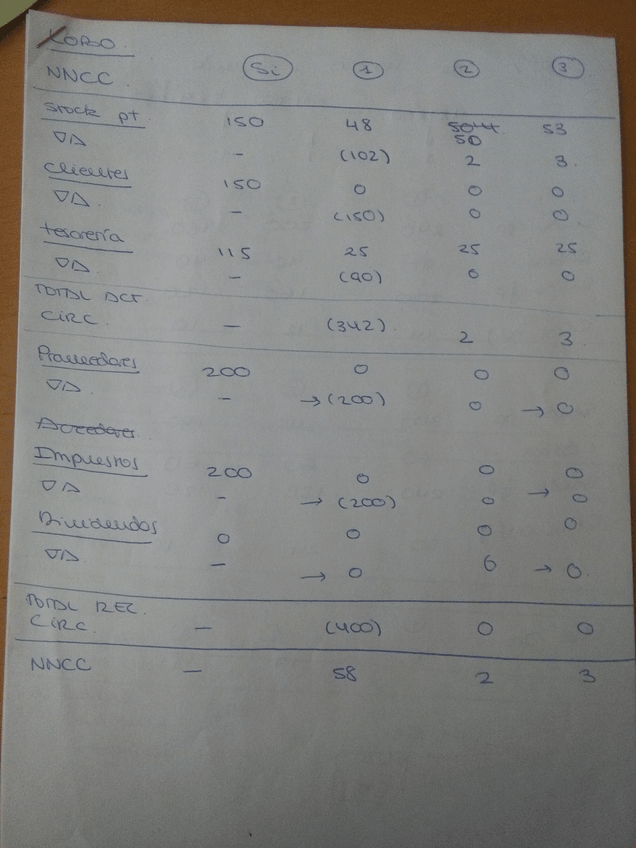 KORSO.
NNCC Si 1 2 3
Stock pt. 150 48 50 53
∇Δ - (102) 2 3.
Clientes 150 0 0 0
∇Δ - (150) 0 0
tesorería 115 25 25 25
∇Δ - (90) 0 0
TOTAL ACT
CIRC. - (342) 2 3
Proveedores 200 0 0 0
∇Δ - →(200) 0 → 0
Acreedores
Impuestos 200 0 0 0
∇Δ - → (200) 0 → 0
Dividendos 0 0 0 0
∇Δ - → 0 0 → 0.
TOTAL REC.
CIRC. - (400) 0 0
NNCC - 58 2 3